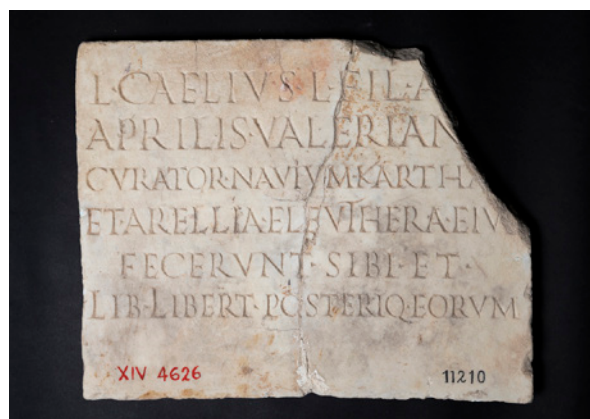 L·CAELIVS·L·FIL·A
APRILIS·VALERIAN
CVRATOR·NAVIVM·KARTHA
ET·ARELLIA·ELEVTHERA·EIV
FECERVNT·SIBI·ET·
LIB·LIBERT·POSTERIQ·EORVM
XIV 4626
11210